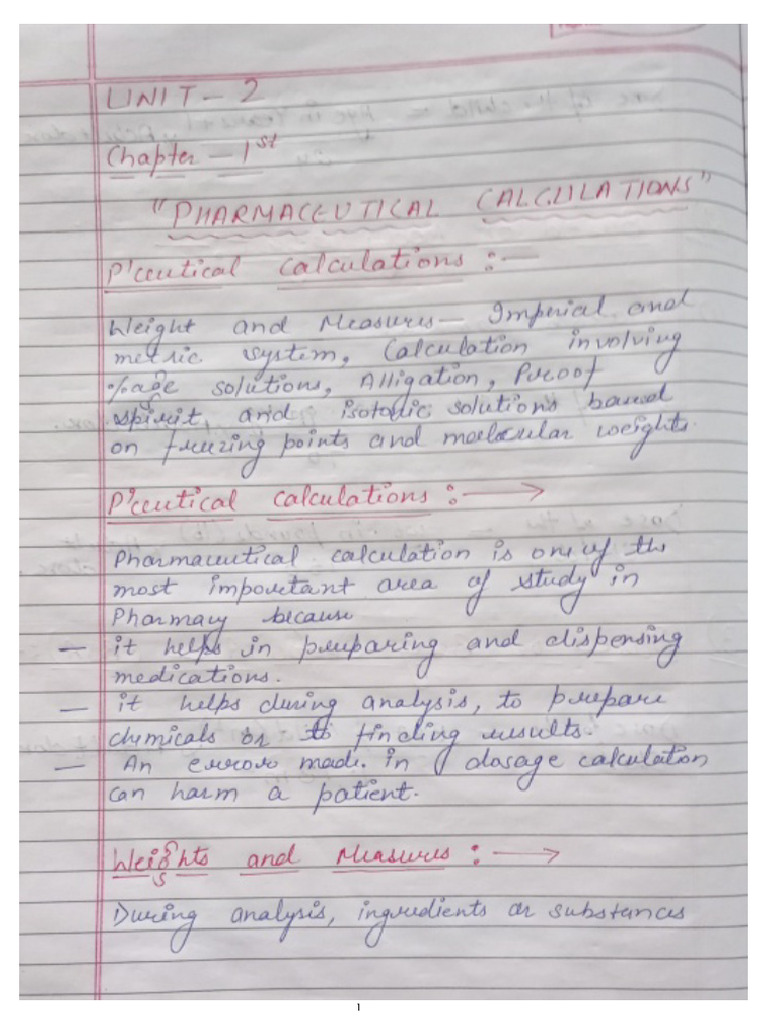 UNIT - 2
Chapter - 1st
"PHARMACEUTICAL CALCULATIONS"
P'ceutical Calculations :-
Weight and Measures - Imperial and
metric system, Calculation involving
%age solutions, Alligation, Proof
spirit, and isotonic solutions based
on freezing points and molecular weights
P'ceutical Calculations :→
Pharmaceutical calculation is one of the
most important area of study in
Pharmacy because
- it helps in preparing and dispensing
medications.
- it helps during analysis, to prepare
chemicals or to finding results.
- An error made in dosage calculation
can harm a patient.
Weights and Measures :→
During analysis, ingredients or substances
1